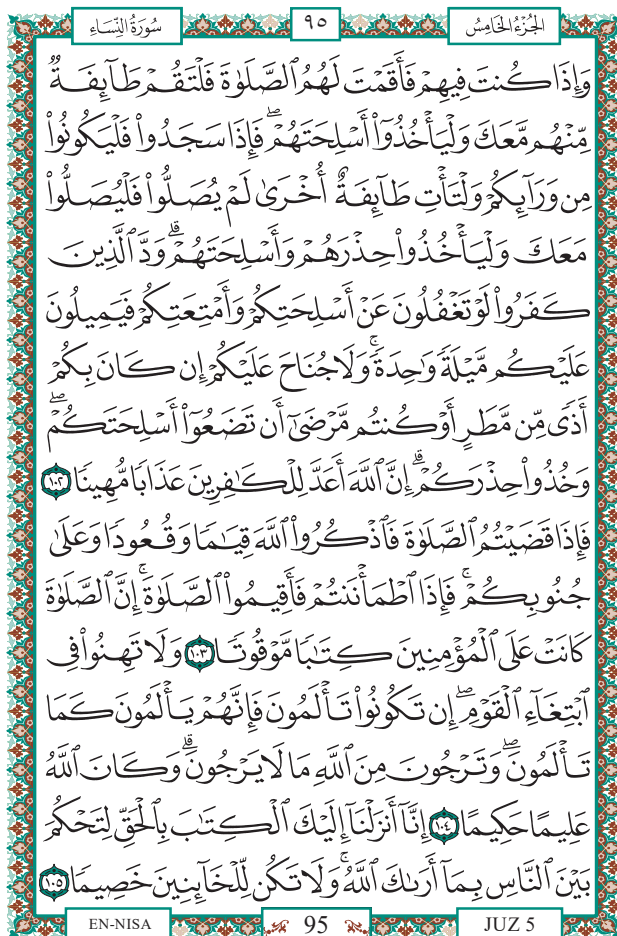 الجُزْءُ الخَامِسُ ٩٥ سُورَةُ النِّسَاءِ
وَإِذَا كُنتَ فِيهِمْ فَأَقَمْتَ لَهُمُ ٱلصَّلَوٰةَ فَلْتَقُمْ طَآئِفَةٌ
مِّنْهُم مَّعَكَ وَلْيَأْخُذُوٓا۟ أَسْلِحَتَهُمْ ۖ فَإِذَا سَجَدُوا۟ فَلْيَكُونُوا۟
مِن وَرَآئِكُمْ وَلْتَأْتِ طَآئِفَةٌ أُخْرَىٰ لَمْ يُصَلُّوا۟ فَلْيُصَلُّوا۟
مَعَكَ وَلْيَأْخُذُوا۟ حِذْرَهُمْ وَأَسْلِحَتَهُمْ ۗ وَدَّ ٱلَّذِينَ
كَفَرُوا۟ لَوْ تَغْفُلُونَ عَنْ أَسْلِحَتِكُمْ وَأَمْتِعَتِكُمْ فَيَمِيلُونَ
عَلَيْكُم مَّيْلَةً وَٰحِدَةً ۚ وَلَا جُنَاحَ عَلَيْكُمْ إِن كَانَ بِكُمْ
أَذًى مِّن مَّطَرٍ أَوْ كُنتُم مَّرْضَىٰٓ أَن تَضَعُوٓا۟ أَسْلِحَتَكُمْ ۖ
وَخُذُوا۟ حِذْرَكُمْ ۗ إِنَّ ٱللَّهَ أَعَدَّ لِلْكَٰفِرِينَ عَذَابًا مُّهِينًا ١٠٢
فَإِذَا قَضَيْتُمُ ٱلصَّلَوٰةَ فَٱذْكُرُوا۟ ٱللَّهَ قِيَٰمًا وَقُعُودًا وَعَلَىٰ
جُنُوبِكُمْ ۚ فَإِذَا ٱطْمَأْنَنتُمْ فَأَقِيمُوا۟ ٱلصَّلَوٰةَ ۚ إِنَّ ٱلصَّلَوٰةَ
كَانَتْ عَلَى ٱلْمُؤْمِنِينَ كِتَٰبًا مَّوْقُوتًا ١٠٣ وَلَا تَهِنُوا۟ فِى
ٱبْتِغَآءِ ٱلْقَوْمِ ۖ إِن تَكُونُوا۟ تَأْلَمُونَ فَإِنَّهُمْ يَأْلَمُونَ كَمَا
تَأْلَمُونَ ۖ وَتَرْجُونَ مِنَ ٱللَّهِ مَا لَا يَرْجُونَ ۗ وَكَانَ ٱللَّهُ
عَلِيمًا حَكِيمًا ١٠٤ إِنَّآ أَنزَلْنَآ إِلَيْكَ ٱلْكِتَٰبَ بِٱلْحَقِّ لِتَحْكُمَ
بَيْنَ ٱلنَّاسِ بِمَآ أَرَىٰكَ ٱللَّهُ ۚ وَلَا تَكُن لِّلْخَآئِنِينَ خَصِيمًا ١٠٥
EN-NISA 95 JUZ 5